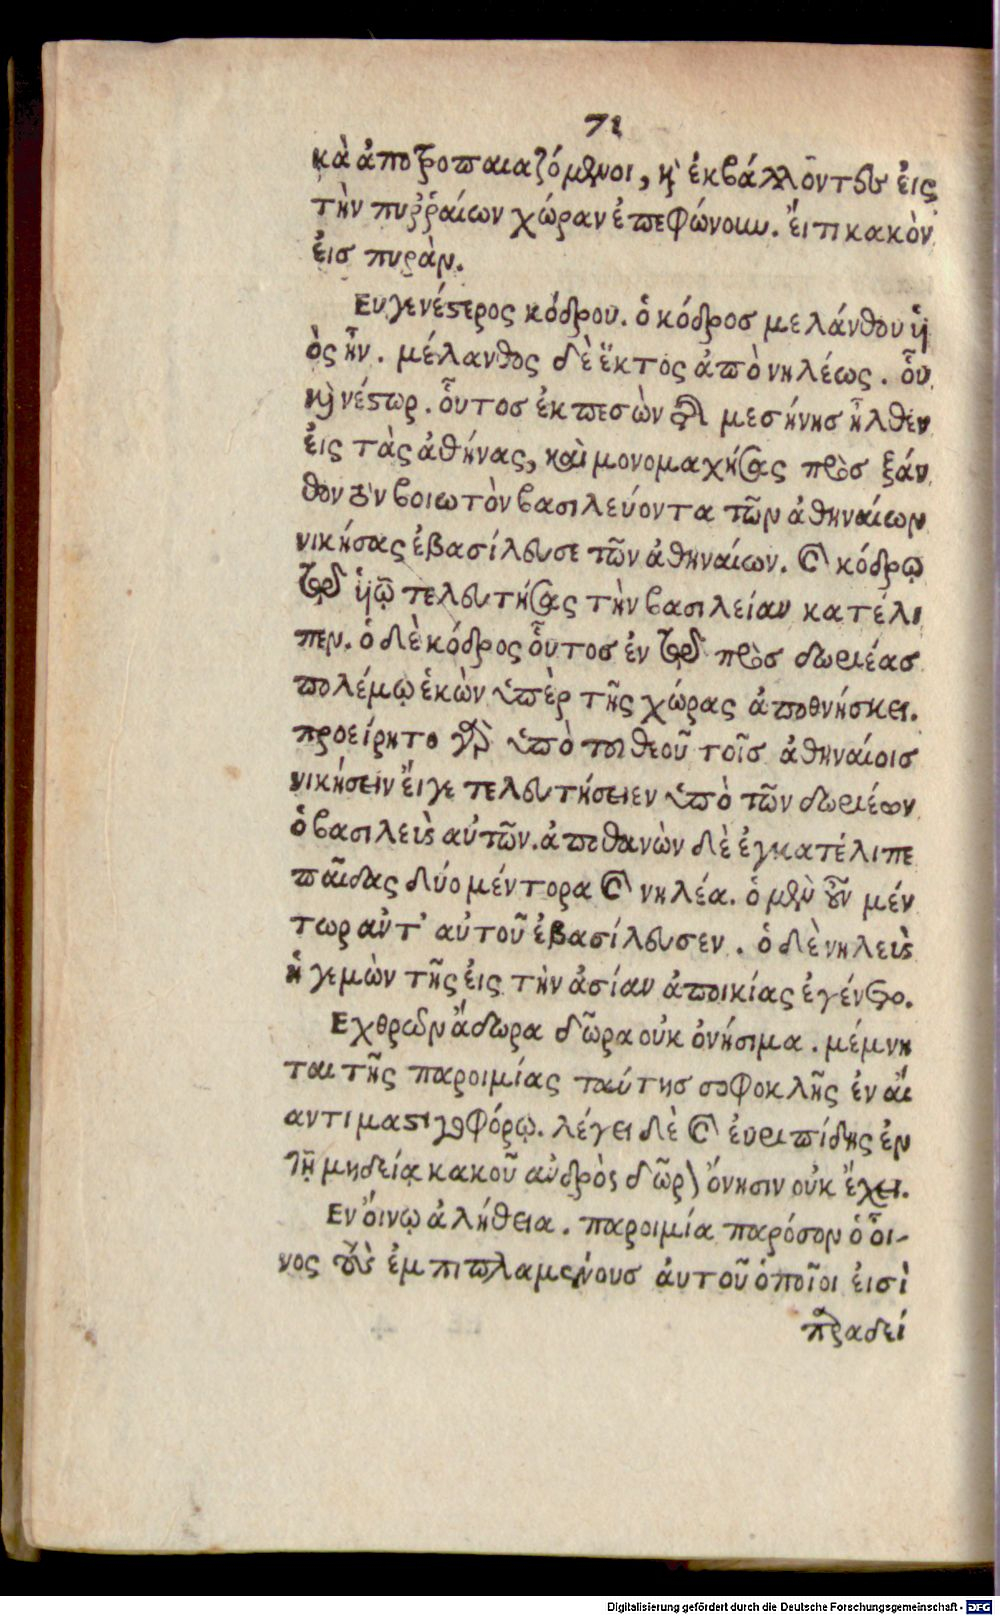 71
κὰ ἀποτροπαιαζόμενοι, καὶ ἐκβάλλοντες εἰς
τὴν πυῤῥαίων χώραν ἐπεφώνουν. ἔιτι κακὸν
ἐισ πυρὰν.
Ευγενέστερος κόδρου. ὁ κόδροσ μελάνθου ὑι
ὸς ἦν. μέλανθος δὲ ἕκτος ἀπὸ νηλέως. οὗ
καὶ νέστωρ. οὗτοσ ἐκπεσὼν ἀπὸ μεσήνησ ἦλθεν
ἐις τὰς ἀθήνας, καὶ μονομαχήσας πρὸσ ξάν
θον τὸν βοιωτὸν βασιλεύοντα τῶν ἀθηναίων
νικήσας ἐβασίλευσε τῶν ἀθηναίων. καὶ κόδρῳ
τῷ ὑιῷ τελευτήσας τὴν βασιλείαν κατέλι
πεν. ὁ δὲ κόδρος οὗτοσ ἐν τῷ πρὸσ δωριέασ
πολέμῳ ἑκὼν ὑπὲρ τῆς χώρας ἀποθνήσκει.
προείρητο γὰρ ὑπὸ του θεοῦ τοῖσ ἀθηναίοισ
νικήσειν ἔιγε τελευτήσειεν ὑπὸ τῶν δωριέων
ὁ βασιλεὺς αὐτῶν. ἀποθανὼν δὲ ἐγκατέλιπε
παῖδας δύο μέντορα καὶ νηλέα. ὁ μὲν οὖν μέν
τωρ αὐτ' αὐτοῦ ἐβασίλευσεν. ὁ δὲ νηλεὺς
ἡγεμὼν τῆς ἐις τὴν ἀσίαν ἀποικίας ἐγένετο.
Εχθρῶν ἄδωρα δῶρα οὐκ ὀνήσιμα. μέμνη
ται τῆς παροιμίας ταύτησ σοφοκλῆς ἐν ἄι
αντι μαστιγοφόρῳ. λέγει δὲ καὶ ἐυριπίδης ἐν
τῇ μηδείᾳ κακοῦ ἀνδρὸς δῶρον ὄνησιν οὐκ ἔχει.
Εν ὄινῳ ἀλήθεια. παροιμία παρόσον ὁ οἶ-
νος τοὺς ἐμπιπλαμένους ἀυτοῦ ὁποῖοι ἐισὶ
παραδεί
Digitalisierung gefördert durch die Deutsche Forschungsgemeinschaft - DFG